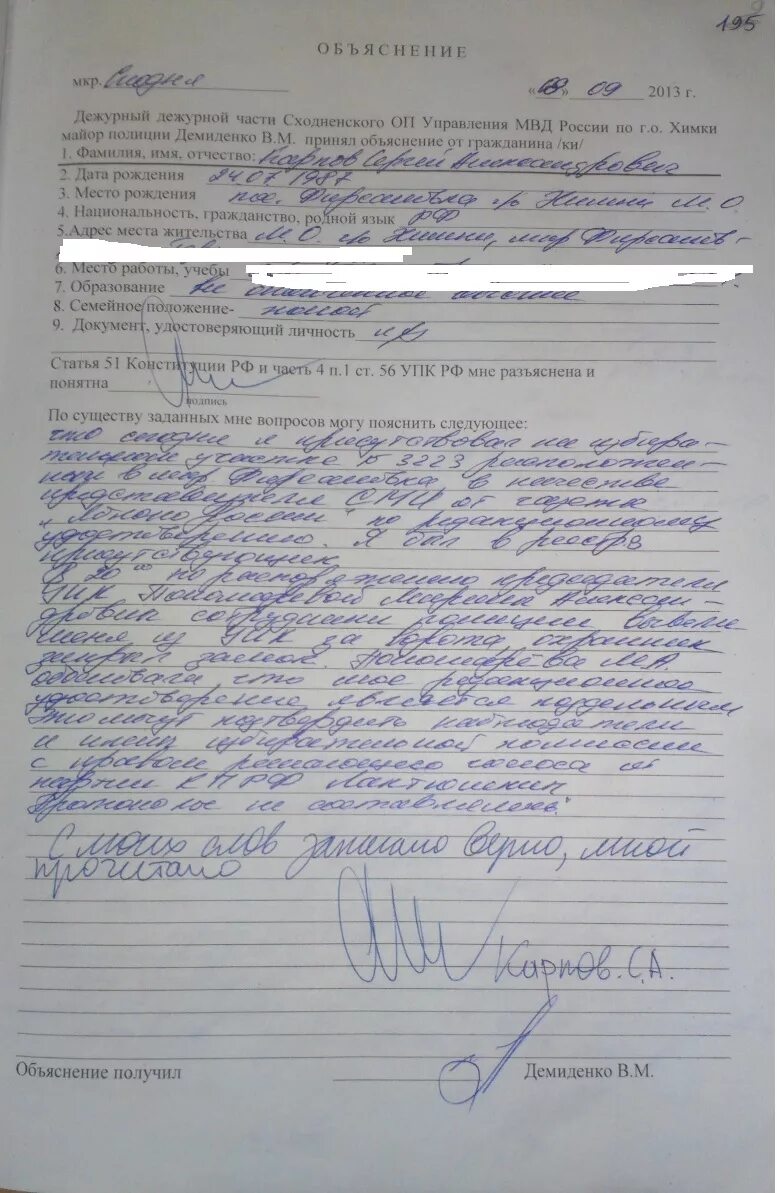 195
ОБЪЯСНЕНИЕ
мкр. Сходня «08» 09 2013 г.
Дежурный дежурной части Сходненского ОП Управления МВД России по г.о. Химки
майор полиции Демиденко В.М. принял объяснение от гражданина /ки/
1. Фамилия, имя, отчество: Карпов Сергей Александрович
2. Дата рождения 24.07.1987
3. Место рождения пос. Фирсановка г/о Химки М.О.
4. Национальность, гражданство, родной язык РФ
5.Адрес места жительства М.О. г/о Химки, мкр Фирсанов-
6. Место работы, учебы
7. Образование не оконченное высшее
8. Семейное положение- холост
9. Документ, удостоверяющий личность
Статья 51 Конституции РФ и часть 4 п.1 ст. 56 УПК РФ мне разъяснена и
понятна
подпись
По существу заданных мне вопросов могу пояснить следующее:
что сегодня я присутствовал на избира-
тельном участке № 3223 расположен-
ном в мкр. Фирсановка в качестве
представителя СМИ от газеты
России" по редакционному
удостоверению. Я был в реестре
присутствующих
В 20 00 по распоряжению председателя
УИК Пономаревой Марины Алексан-
дровны сотрудники полиции вывели
меня из УИК за ворота охранник
закрыл замок. Пономарёва М.А.
что мое редакционное
удостоверение является поддельным
Это могут подтвердить наблюдатели
и член избирательной комиссии
с правом решающего голоса от
партии КПРФ Лактюшкин
Протоколы не составлялись.
С моих слов записано верно, мной
прочитано
Карпов. С.А.
Объяснение получил Демиденко В.М.